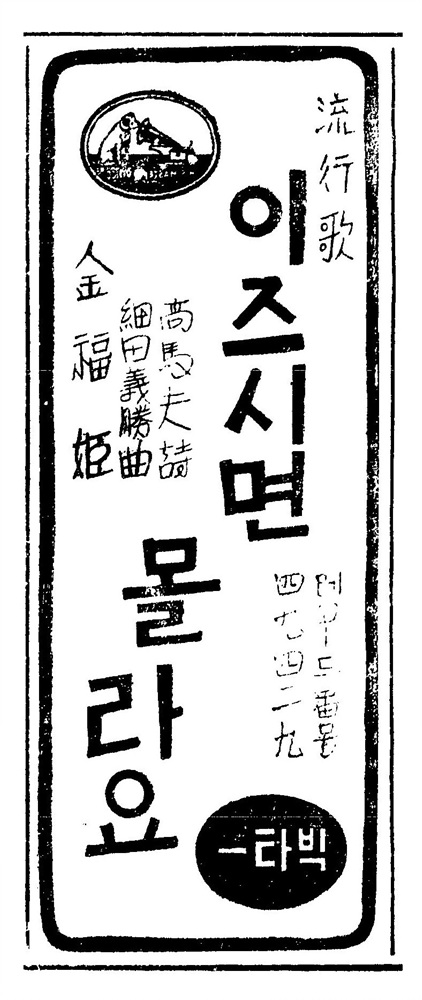 流行歌
이즈시면
몰라요
高馬夫詩
細田義勝曲
金福姬
番号
四九四二九
빅타ー